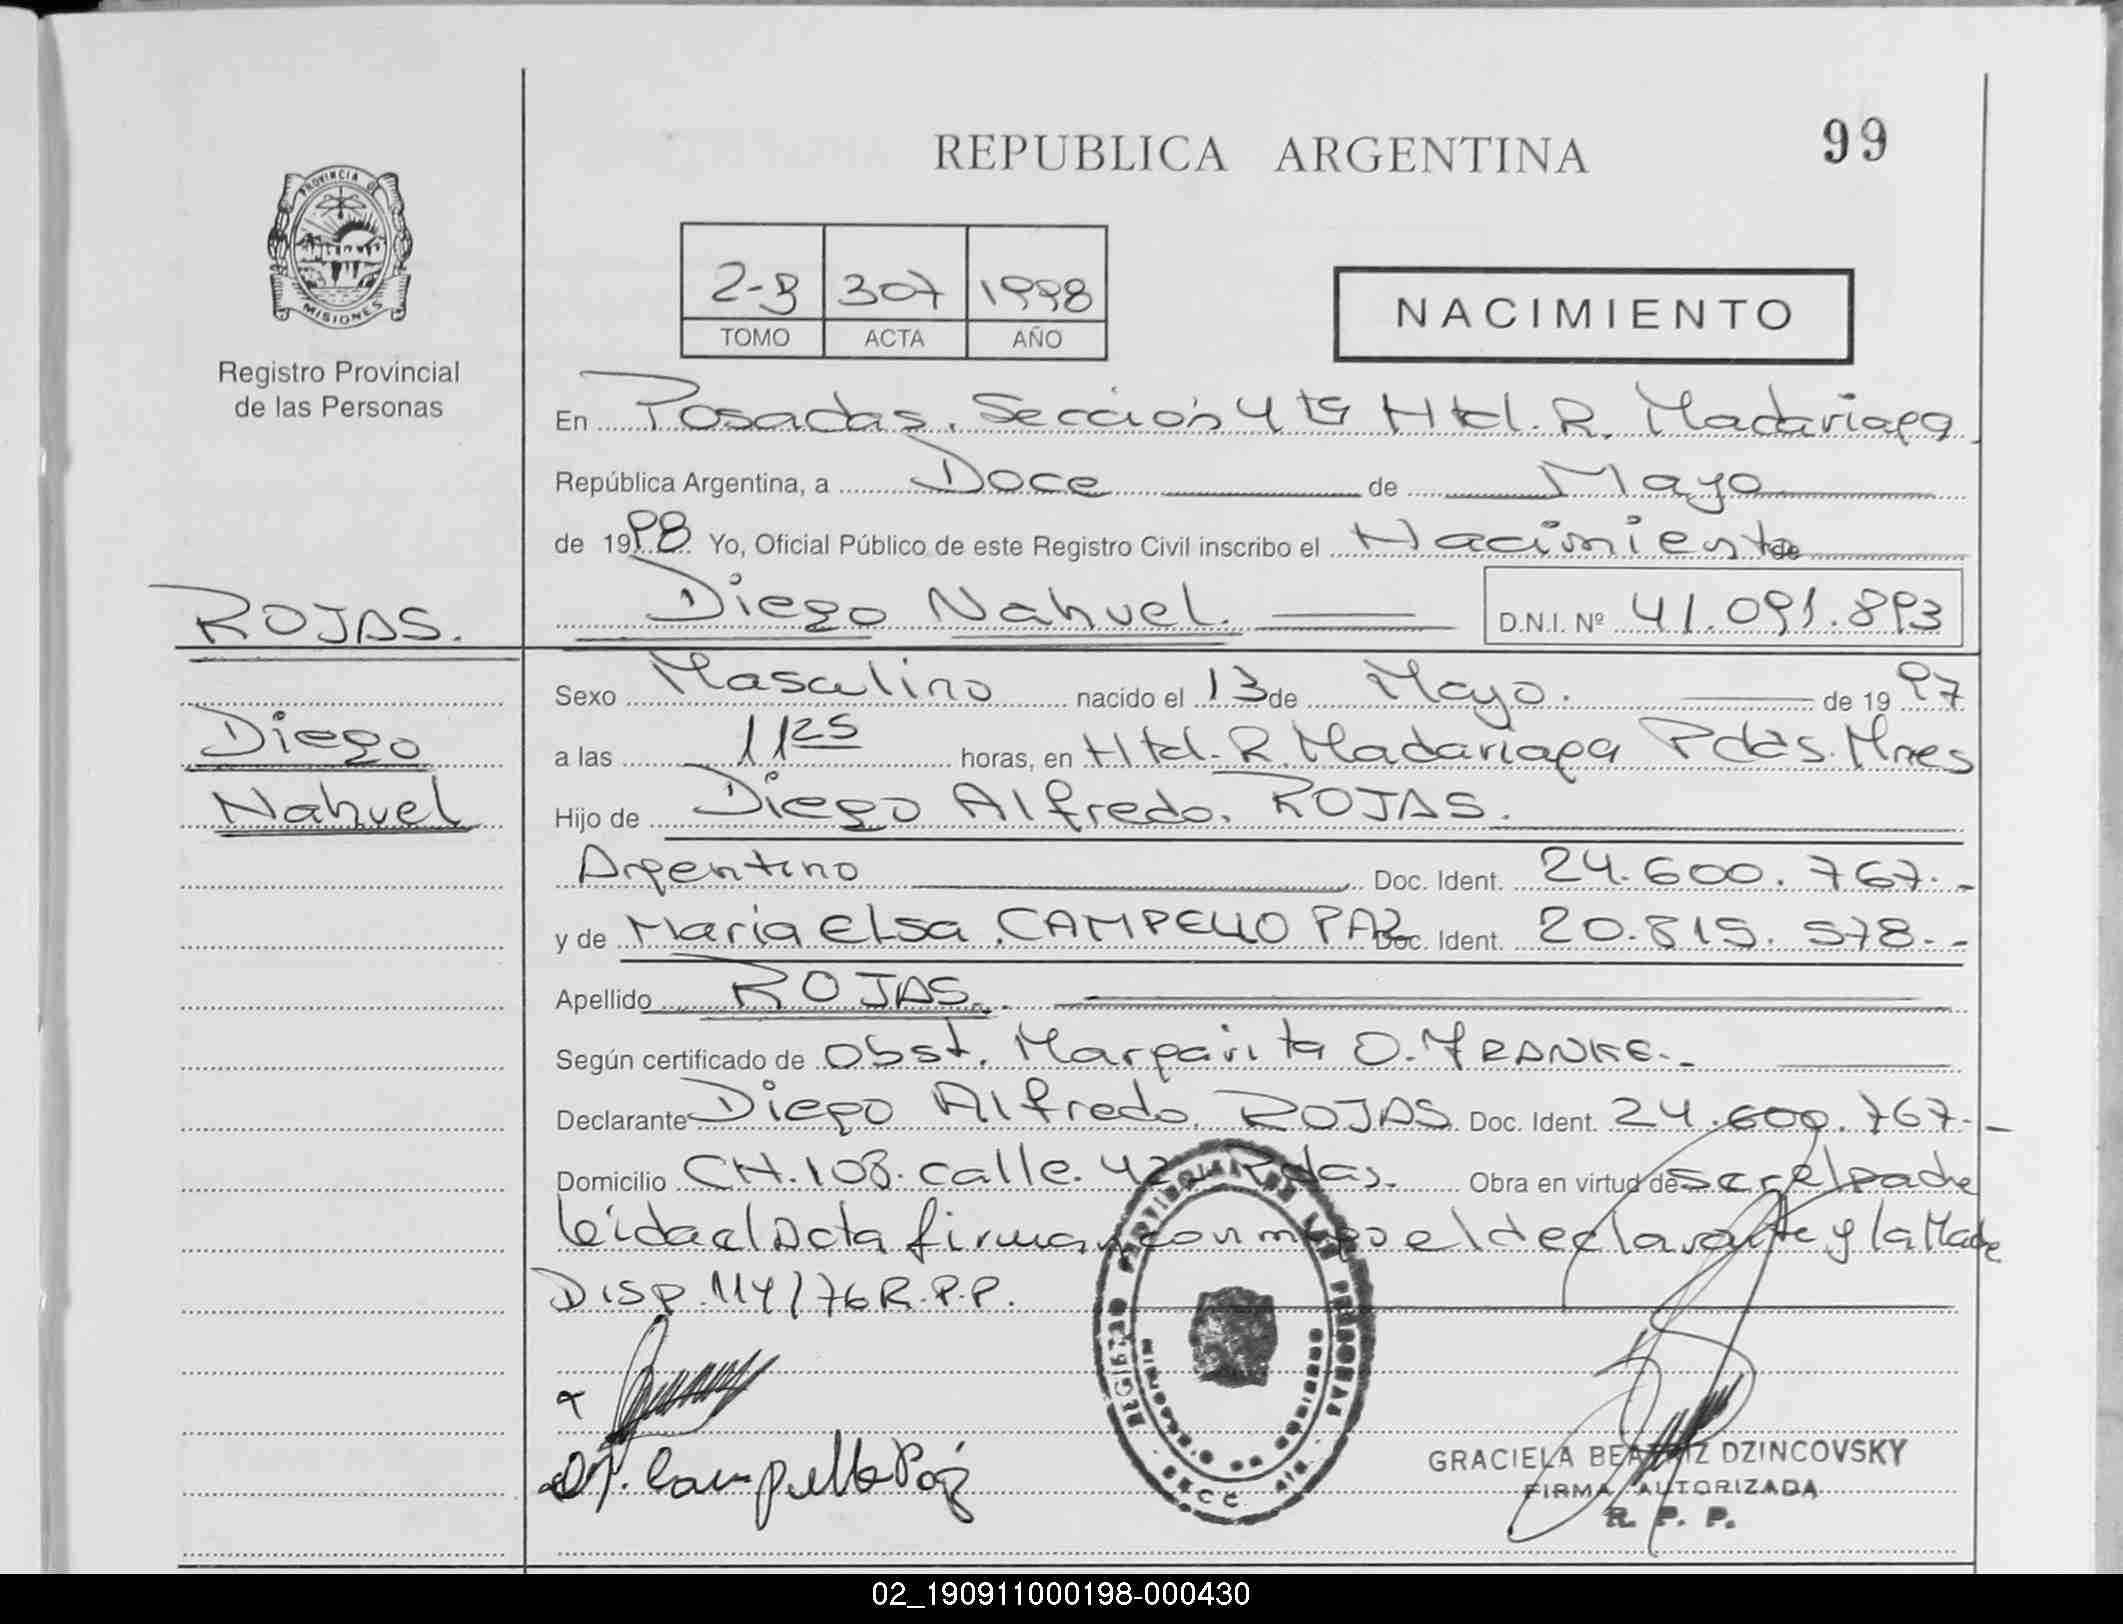 REPUBLICA ARGENTINA
99
PROVINCIA DE
MISIONES
Registro Provincial
de las Personas
2-B 307 1998
TOMO ACTA AÑO
NACIMIENTO
En Posadas. Sección 4ta Htal. R. Madariaga
República Argentina, a Doce de Mayo
de 1998 Yo, Oficial Público de este Registro Civil inscribo el Nacimiento de
ROJAS.
Diego Nahuel. D.N.I. Nº 41.091.893
Sexo Masculino nacido el 13 de Mayo. de 1997
Diego
a las 11 25 horas, en Htal. R. Madariaga Pdas. Mnes
Nahuel
Hijo de Diego Alfredo. ROJAS.
Argentino Doc. Ident. 24.600.767.-
y de Maria Elsa. CAMPELLO PAZ Doc. Ident. 20.815.578.-
Apellido ROJAS.
Según certificado de Obst. Margarita O. FRANKE.-
Declarante Diego Alfredo. ROJAS Doc. Ident. 24.600.767.-
Domicilio CH.108. calle. 42 Pdas. Obra en virtud de ser el padre
leida el Acta firman con migo el declarante y la Madre
DISP. 114/76 R.P.P.
M. Campello Paz
GRACIELA BEATRIZ DZINCOVSKY
FIRMA AUTORIZADA
R. P. P.
02_190911000198-000430